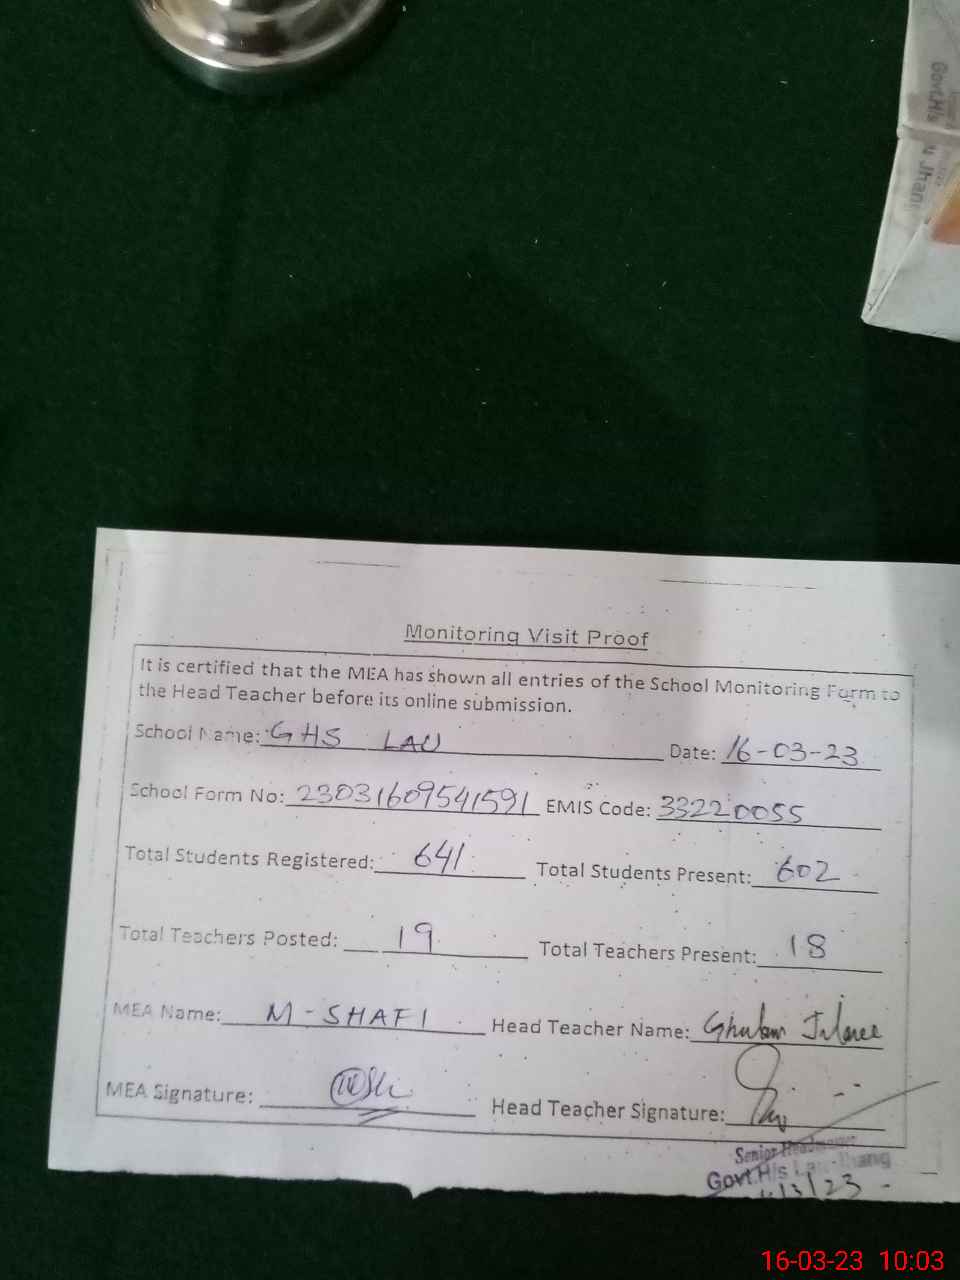 Govt.H/s
Jhang
Monitoring Visit Proof
It is certified that the MEA has shown all entries of the School Monitoring Form to
the Head Teacher before its online submission.
School Name: GHS LAU Date: 16-03-23
School Form No: 23031609541591 EMIS Code: 33220055
Total Students Registered: 641 Total Students Present: 602
Total Teachers Posted: 19 Total Teachers Present: 18
MEA Name: M-SHAFI Head Teacher Name: Ghulam
MEA Signature: Head Teacher Signature:
Senior Headmaster
Govt.H/s Lau Jhang
3/23
16-03-23 10:03